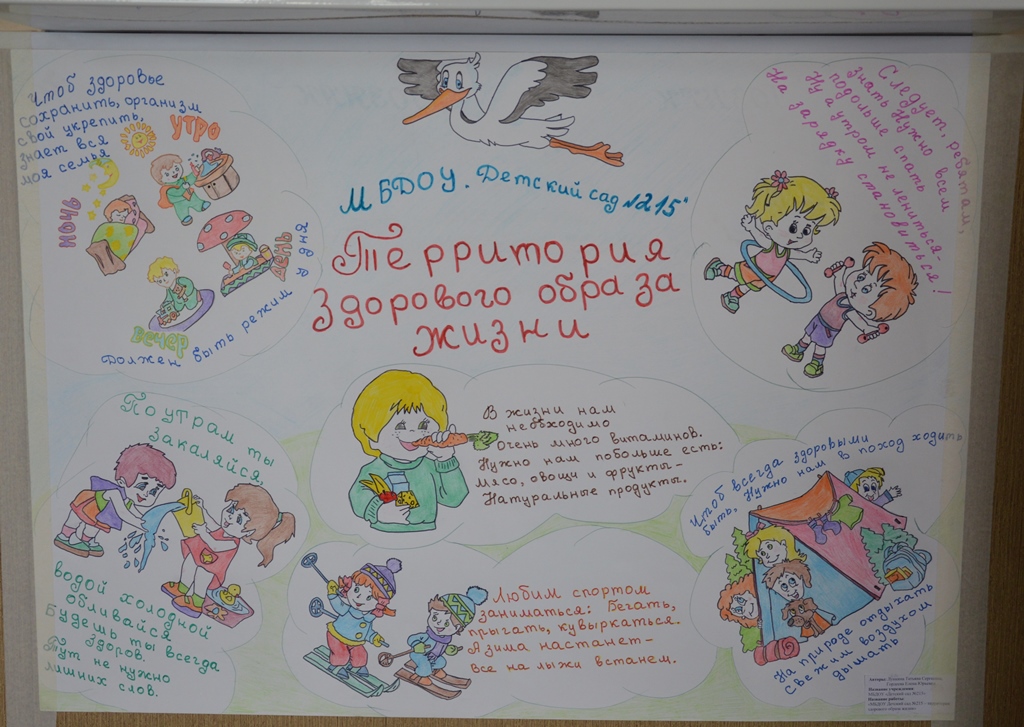 Чтоб здоровье
сохранить, организм
свой укрепить,
знает вся
моя семья
УТРО
НОЧЬ
ДЕНЬ
ВЕЧЕР
Должен быть режим у дня
МБДОУ "Детский сад №215"
Территория
здорового образа
жизни
Следует, ребятам,
знать Нужно всем
подольше спать
Ну а утром не лениться-
На зарядку становиться!
По утрам ты
закаляйся,
водой холодной
обливайся
Будешь ты всегда
здоров.
Тут не нужно
лишних слов.
В жизни нам
необходимо
Очень много витаминов.
Нужно нам побольше есть:
Мясо, овощи и фрукты-
Натуральные продукты.
Любим спортом
заниматься: Бегать,
прыгать, кувыркаться.
А зима настанет-
все на лыжи встанем.
Чтоб всегда здоровыми
быть, Нужно нам в поход ходить
На природе отдыхать
Свежим воздухом
дышать
Авторы:
Название учреждения
Название работы